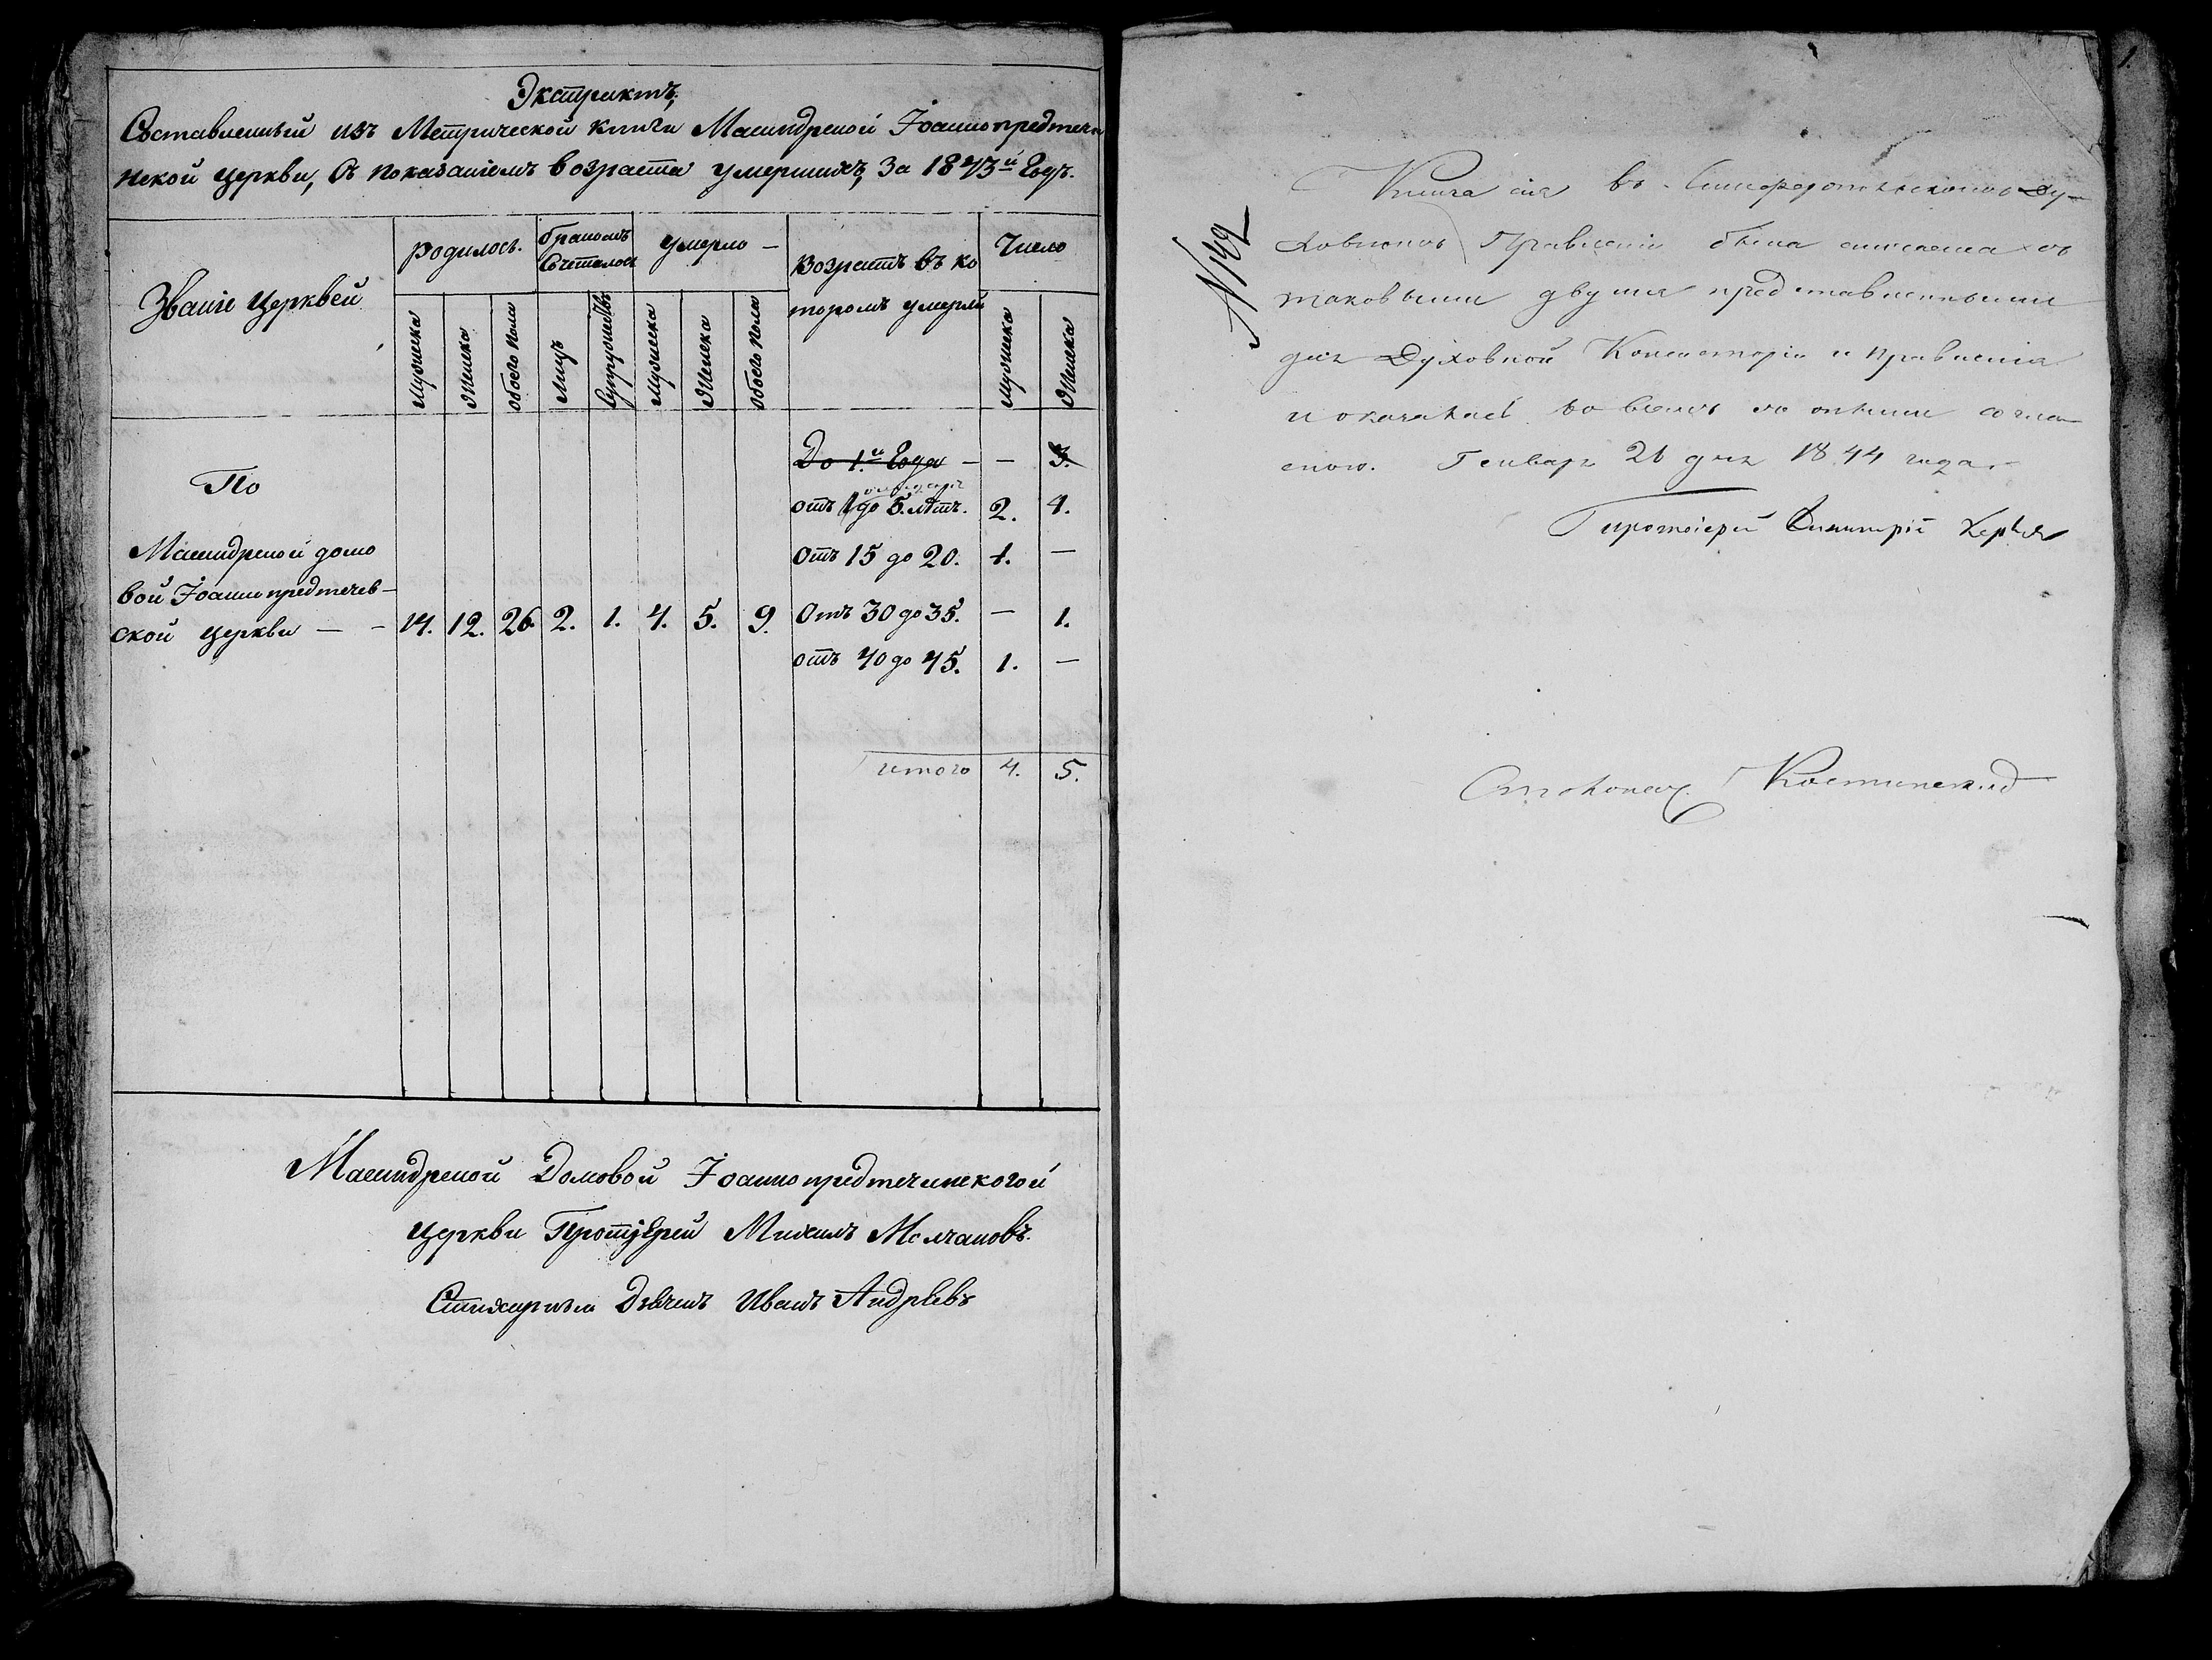 Экстрактъ,
Составленный изъ Метрической книги Масандрской Іоаннопредтечи
нской церкви, съ показаніемъ возраста умершихъ, за 1843й Годъ.
Званіе Церквей
родилось.
бракомъ
Счеталось
умерло —
Возрастъ въ ко
торомъ умерли
Число
Мужеска
Женска
обоего пола
Лицъ
Супружествъ
Мужеска
Женска
обоего пола
Мужеска
Женска
До 1.го Года — — 3.
По
отъ 1 до 5. лѣтъ. 2. 4.
Масандрской домо
отъ 15 до 20. 1. —
вой Іоаннопредтечев-
ской церкви — — 14. 12. 26. 2. 1. 4. 5. 9. Отъ 30 до 35. — 1.
отъ 40 до 45. 1. —
итого 4. 5.
Масандрской Домовой Іоаннопредтечинскогой
Церкви Протоіерей Михаилъ Молчановъ.
Стихарный Дьячекъ Иванъ Андрѣевъ
1.
Книга сія въ Симферопольскомъ Ду-
ховномъ Правленіи была съ
таковыми двумя представленными
для Духовной Консисторіи и Правленія
и оказалась во всемъ съ оными согла
сною. Генваря 21 дня 1844 года.
Протоіерей Димитрій